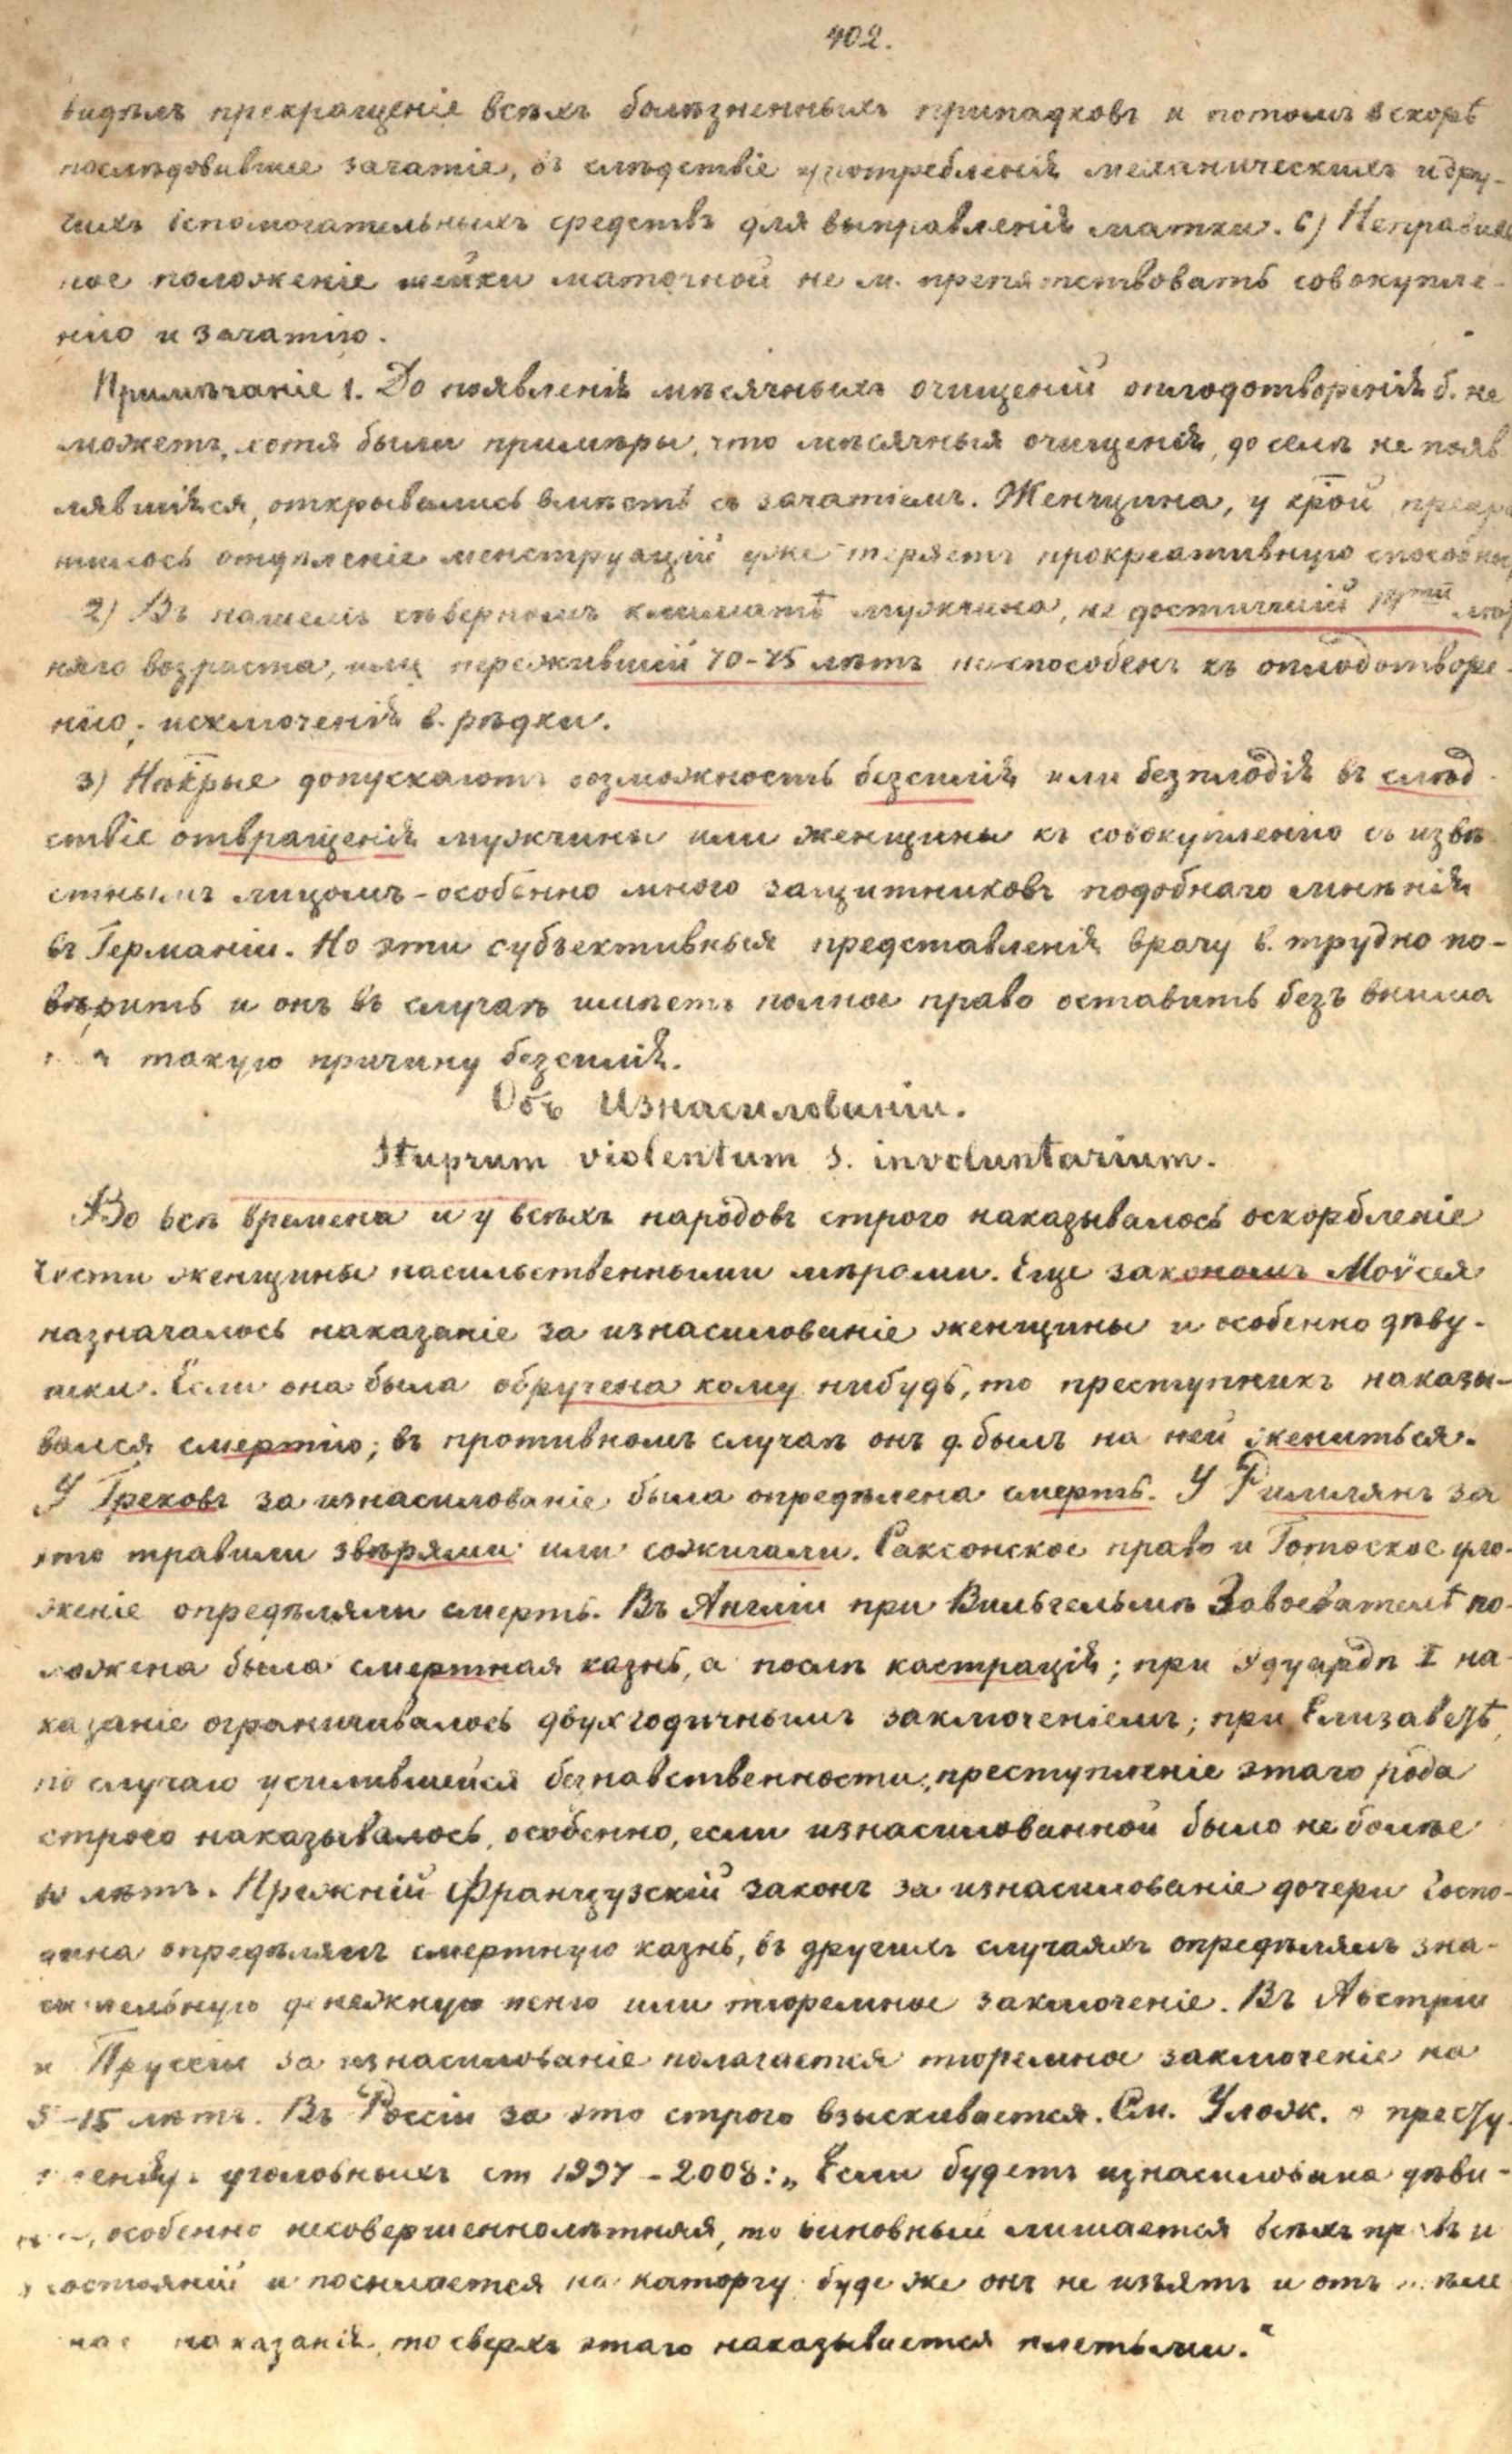 402.
видѣлъ прекращеніе всѣхъ болѣзненныхъ припадковъ и потомъ вскорѣ
послѣдовавшее зачатіе, въ слѣдствіе употребленія механическихъ и дру-
гихъ вспомогательныхъ средствъ для выправленія матки. 6) Неправиль
ное положеніе шейки маточной не м. препятствовать совокупле-
нію и зачатію.
Примѣчаніе 1. До появленія мѣсячныхъ очищеній оплодотворенія б. не
можетъ, хотя были примѣры, что мѣсячныя очищенія, до селѣ не появ
лявшіяся, открывались вмѣстѣ съ зачатіемъ. Женщина, у крой прекра
тилось отдѣленіе менструацій уже теряетъ прокреативную способнос
2) Въ нашемъ сѣверномъ климатѣ мужчина, не достигшій лѣт
няго возраста, или пережившій 70-75 лѣтъ неспособенъ къ оплодотворе-
нію; исключенія в. рѣдки.
3) Нѣкрые допускаютъ возможность безсилія или безплодія въ слѣд-
ствіе отвращенія мужчины или женщины къ совокупленію съ извѣ
стнымъ лицомъ - особенно много защитниковъ подобнаго мнѣнія
въ Германіи. Но эти субъективныя представленія врачу в. трудно по-
вѣрить и онъ въ случаѣ имѣетъ полное право оставить безъ внима
такую причину безсилія.
Объ Изнасилованіи.
Stuprum violentum s. involuntarium.
Во всѣ времена и у всѣхъ народовъ строго наказывалось оскорбленіе
чести женщины насильственными мѣрами. Еще закономъ Моѵсея
назначалось наказаніе за изнасилованіе женщины и особенно дѣву-
шки. Если она была обручена кому нибудь, то преступникъ наказы-
вался смертію; въ противномъ случаѣ онъ д. былъ на ней жениться.
У Грековъ за изнасилованіе была опредѣлена смерть. У Римлянъ за
это травили звѣрями или сожигали. Саксонское право и Готское уло-
женіе опредѣляли смерть. Въ Англіи при Вильгельмѣ Завоевателѣ по-
ложена была смертная казнь, а послѣ кастрація; при Эдуардѣ I на-
казаніе ограничивалось двухгодичнымъ заключеніемъ; при Елизаветѣ,
по случаю усилившейся безнавственности, преступленіе этаго рода
строго наказывалось, особенно, если изнасилованной было не болѣе
10 лѣтъ. Прежній Французскій законъ за изнасилованіе дочери Госпо-
дина опредѣлялъ смертную казнь, въ другихъ случаяхъ опредѣлялъ зна-
чительную денежную пеню или тюремное заключеніе. Въ Австріи
и Пруссіи за изнасилованіе полагается тюремное заключеніе на
5-15 лѣтъ. Въ Россіи за это строго взыскивается. См. Улож. о престу-
уголовныхъ ст 1997 - 2008: „Если будетъ изнасилована дѣви-
особенно несовершеннолѣтняя, то виновный лишается всѣхъ правъ и
состояній и посылается на каторгу буде же онъ не изъятъ и отъ
наказанія, то сверхъ этаго наказывается плетьми."